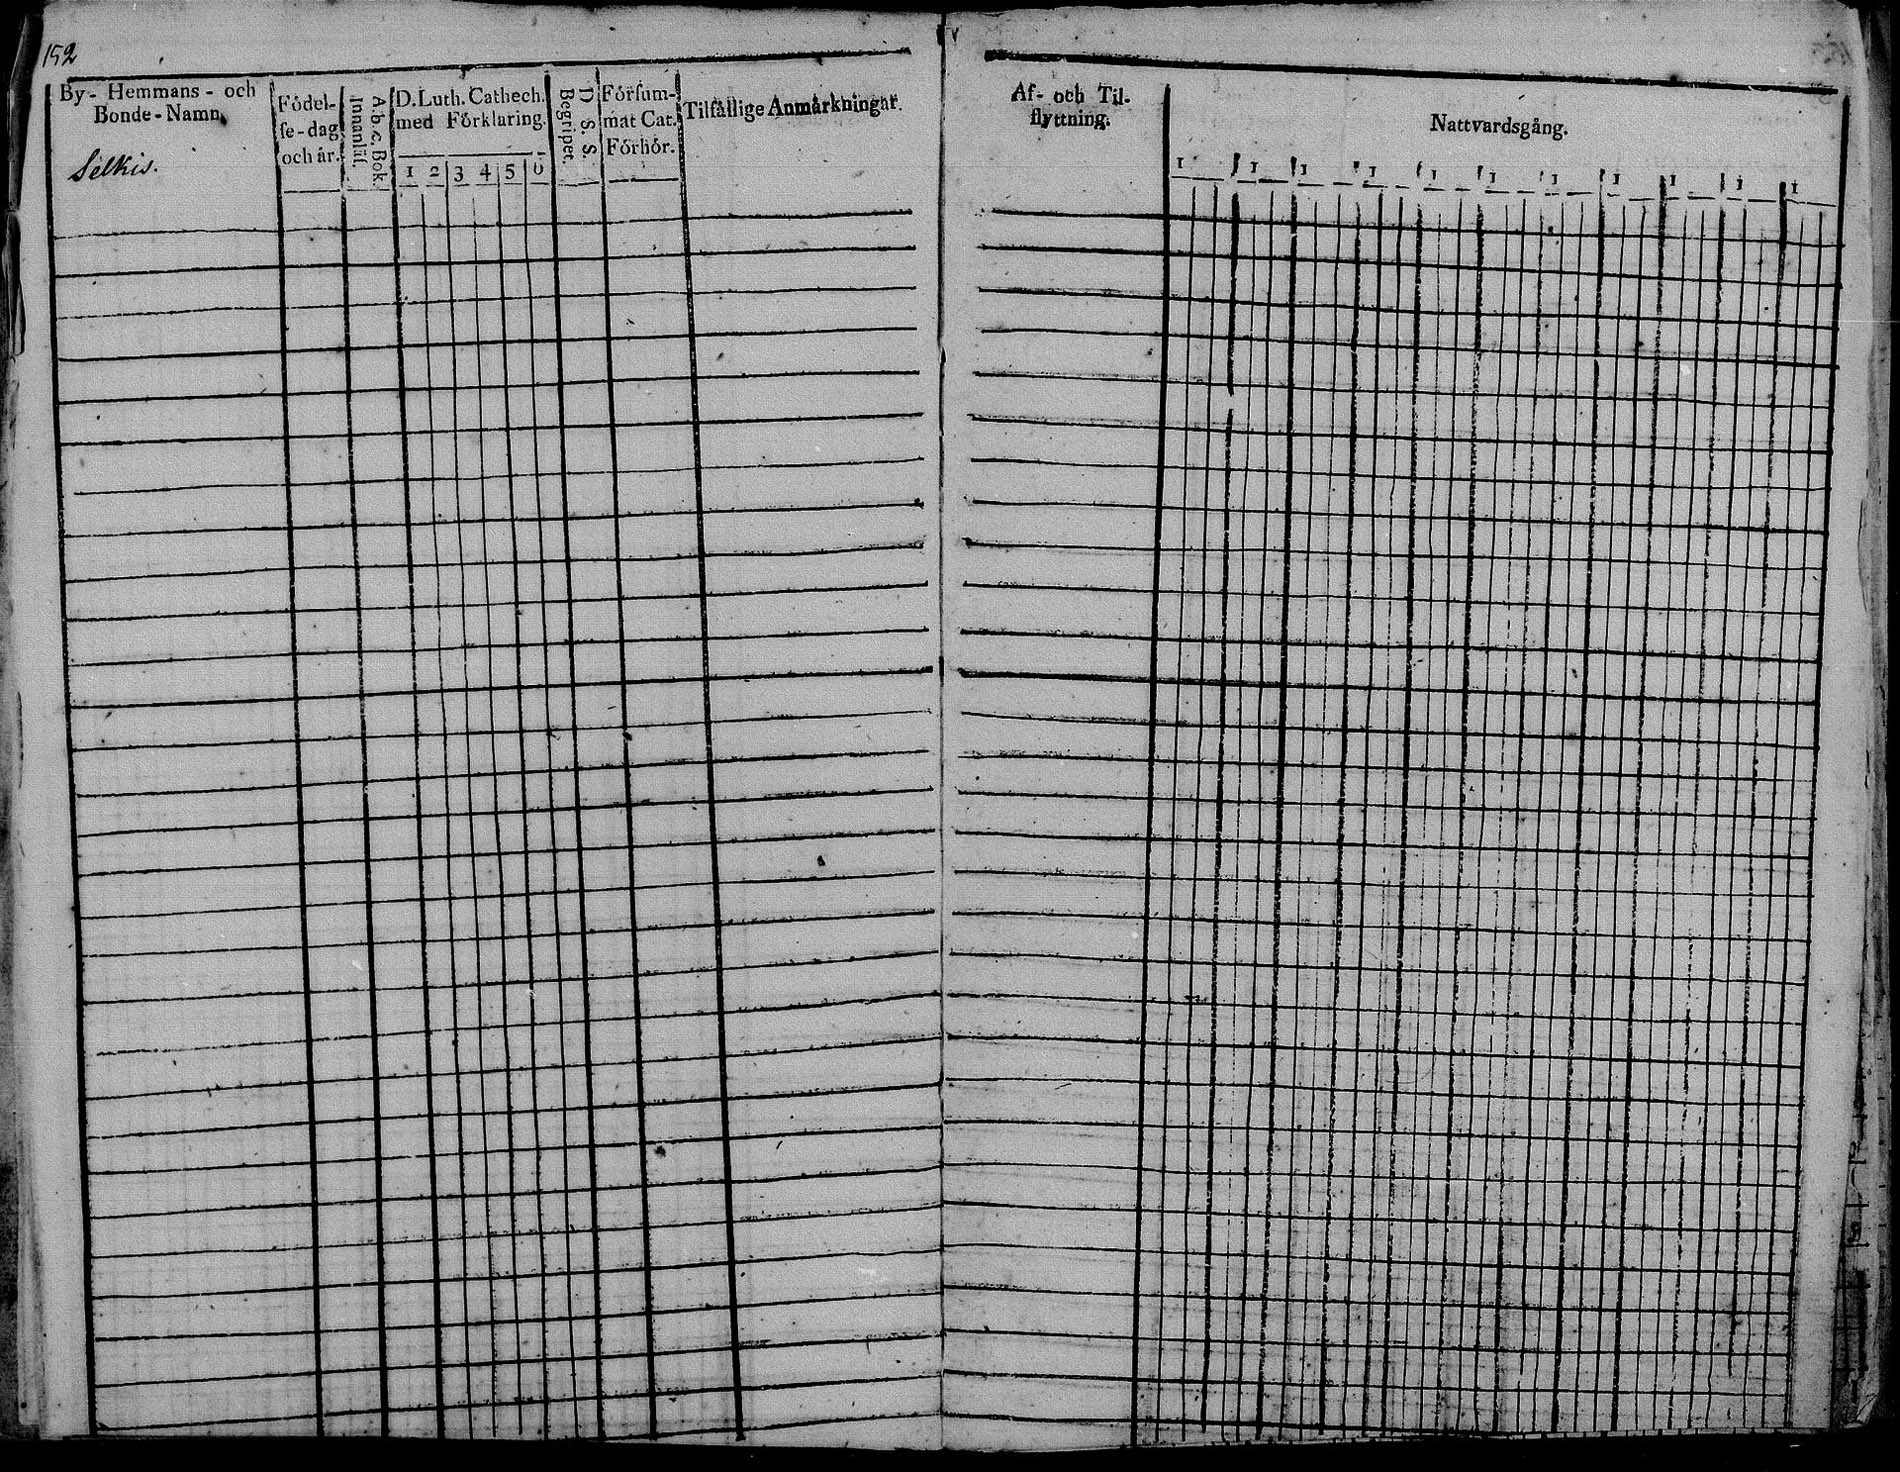 152
By- Hemmans- och
Bonde-Namn.
Selkis.
Födel-
se-dag
och år.
Ab.c. Bok.
Innanläs.
D. Luth. Cathech.
med Förklaring.
1 2 3 4 5 6
D. S. S.
Begripet.
Försum-
mat Cat.
Förhör.
Tilfällige Anmärkningar.
Af- och Til-
flyttning.
Nattvardsgång.
1 1 1 1 1 1 1 1 1 1 1